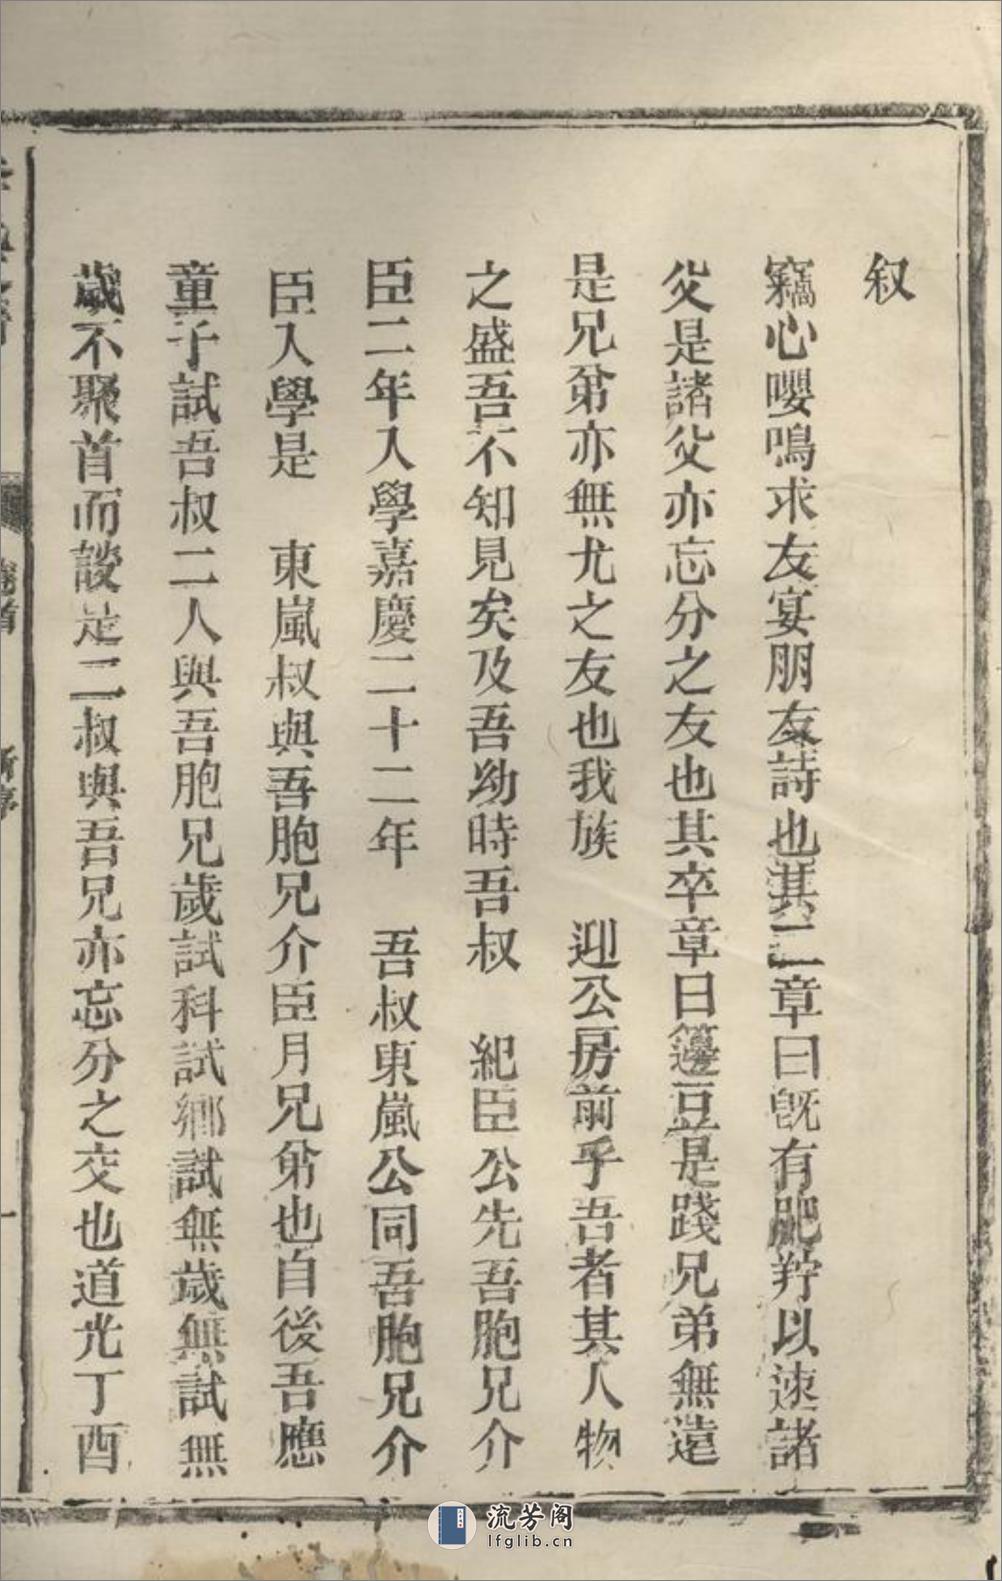 叙
竊心嚶鳴求友宴朋友詩也其二章曰旣有肥羜以速諸
父是諸父亦忘分之友也其卒章曰籩豆是踐兄弟無遠
是兄弟亦無尤之友也我族 迎公房前乎吾者其人物
之盛吾不知見矣及吾幼時吾叔 紀臣公先吾胞兄介
臣二年入學嘉慶二十二年 吾叔東嵐公同吾胞兄介
臣入學是 東嵐叔與吾胞兄介臣月兄弟也自後吾應
童子試吾叔二人與吾胞兄歲試科試鄉試無歲無試無
歲不聚首而談是二叔與吾兄亦忘分之交也道光丁酉
卷首
新序
一
流芳阁
lfglib.cn